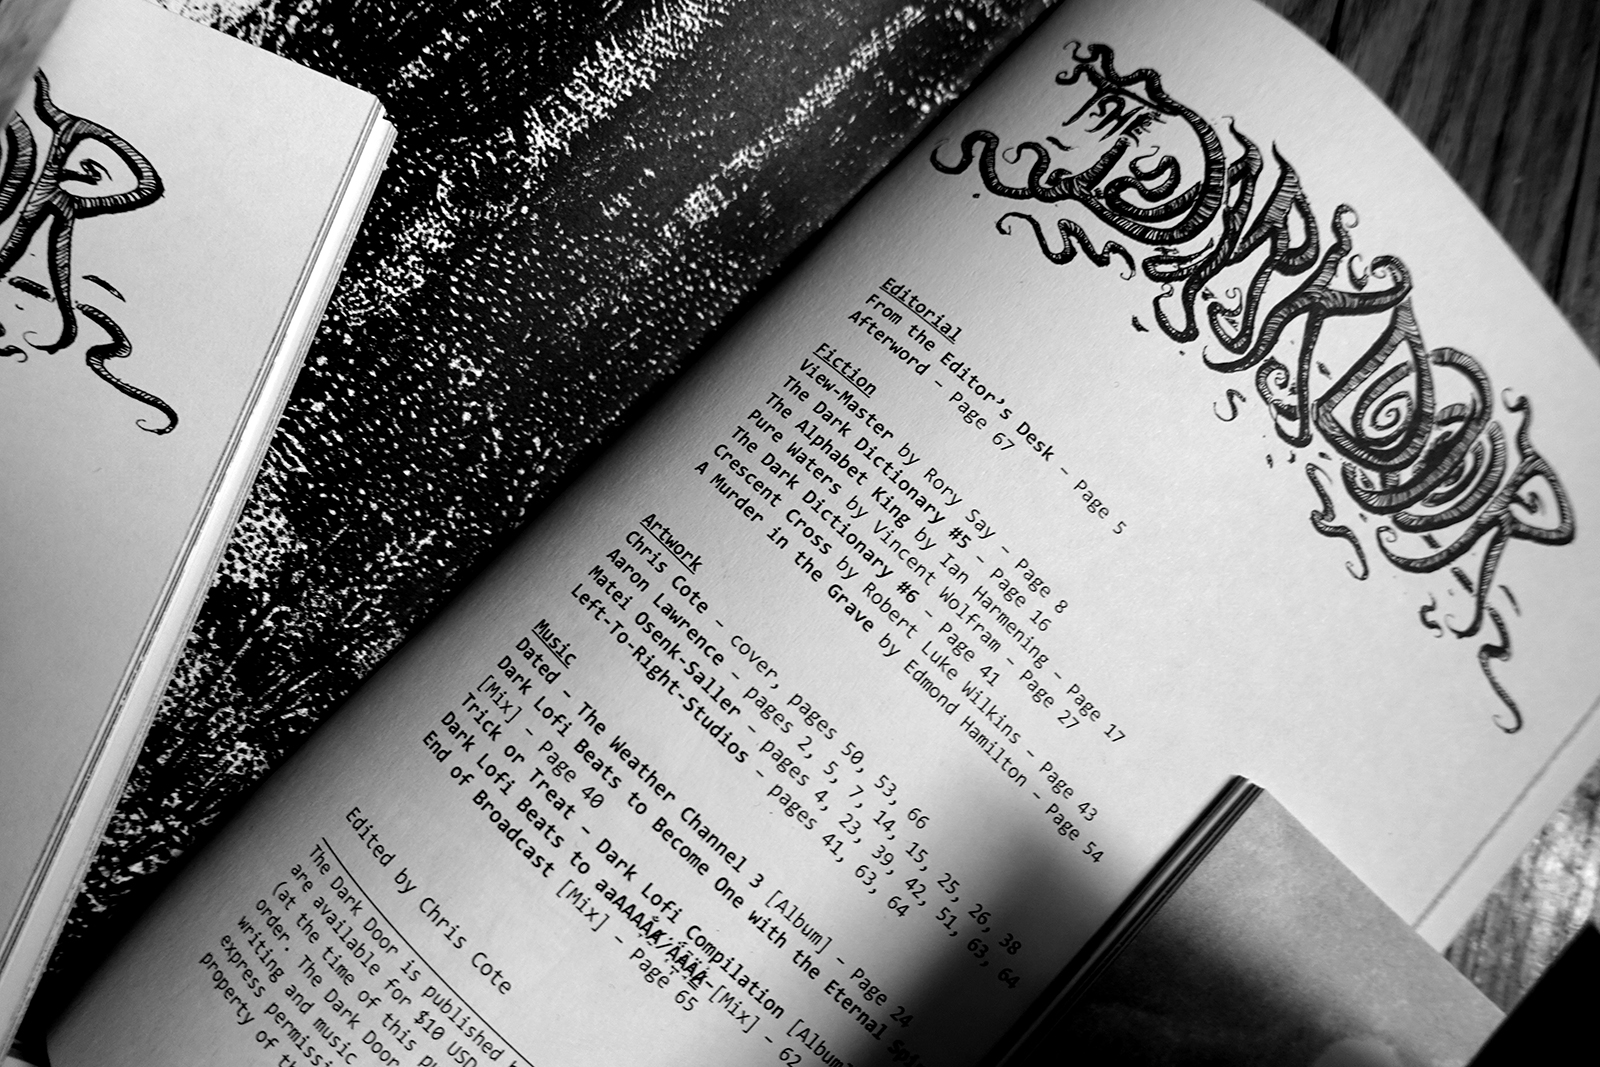 THE
DARK DOOR
Editorial
From the Editor's Desk – Page 5
Afterword – Page 67
Fiction
View-Master by Rory Say – Page 8
The Dark Dictionary #5 – Page 16
The Alphabet King by Ian Harmening – Page 17
Pure Waters by Vincent Wolfram – Page 27
The Dark Dictionary #6 – Page 41
Crescent Cross by Robert Luke Wilkins – Page 43
A Murder in the Grave by Edmond Hamilton – Page 54
Artwork
Chris Cote – cover, pages 50, 53, 66
Aaron Lawrence – pages 2, 5, 7, 14, 15, 25, 26, 38
Matei Osenk-Saller – pages 4, 23, 39, 42, 51, 63, 64
Left-To-Right-Studios – pages 41, 63, 64
Music
Dated – The Weather Channel 3 [Album] – Page 24
Dark Lofi Beats to Become One with the Eternal
[Mix] – Page 40
Trick or Treat – Dark Lofi Compilation [Album
Dark Lofi Beats to [Mix] – 62
End of Broadcast [Mix] – Page 65
Edited by Chris Cote
The Dark Door is published
are available for $10 USD
(at the time of this
order. The Dark Door
writing and music
express
property of